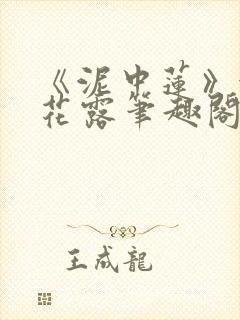 《泥中蓮》
花露筆趣閣
王成龍